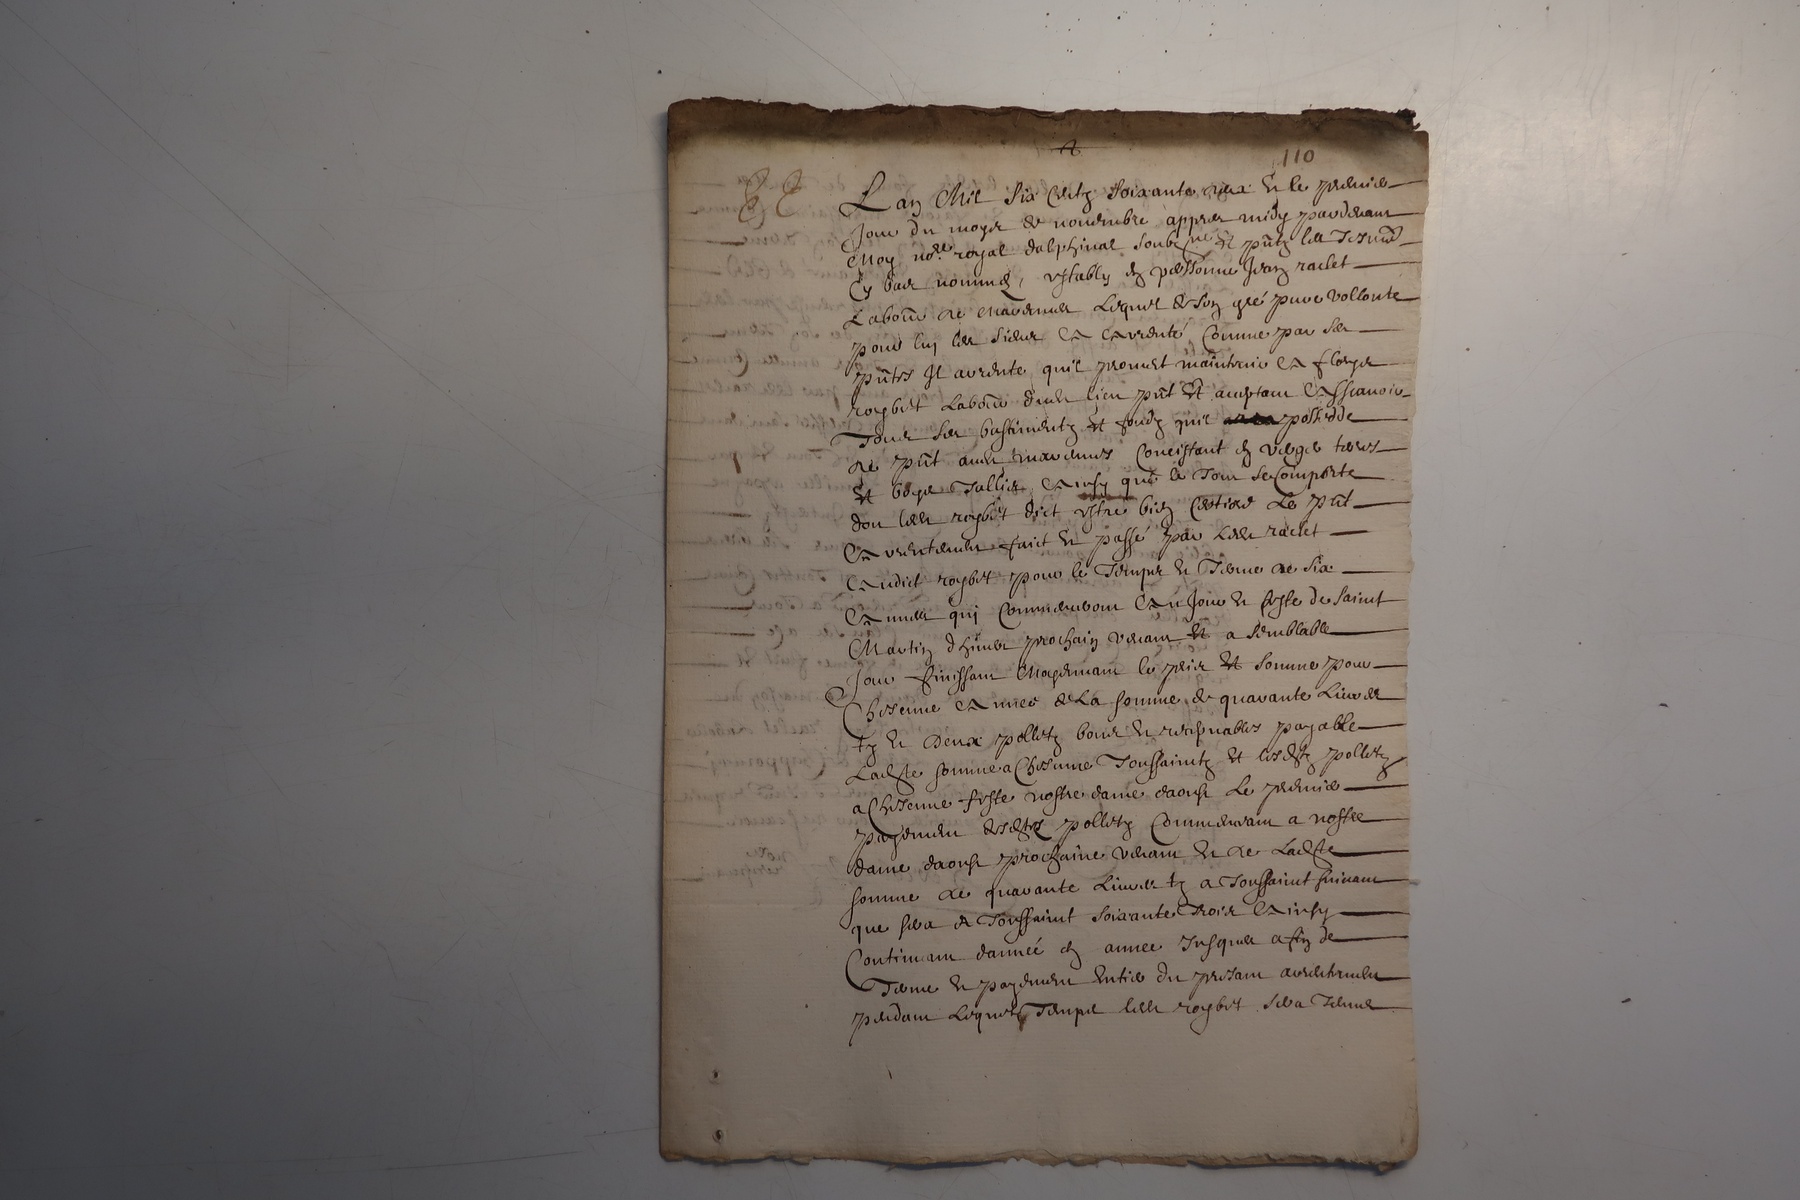 110
Lan Mil six centz soixante deux et le premier
Jour du moys de novembre appres midy pardevant
Moy no.re royal dalphinal soubz.ne et pntz les tesmo
Cy bas nommes, estably en personne Jean raclet
Labor de Lequel de son gré pure vollonte
pour luy les siens a arrenté comme par ses
pntes Il arrente, quil promet maintenir a
roybet Labor dud lieu pnt et acceptant assavoir
Tous ses bastimentz et fondz quil possede
de pnt aud Concistant en verger terres
et boys Tallis, ainsy que le Tout se Comporte
don led roybet dict estre bien Certioré Le pnt
arrentement faict et passé par led raclet
audict roybet pour le Temps et Terme de six
annees quy Commenceront au Jour et feste de Saint
Martin dhiver prochain venant et a semblable
Jour finissant Moyenant le prix et somme pour
Chescune annee de La somme de quarante Livres
tz et deux polletz bons et receptables payable
Ladte somme a Chescune Toussaintz et lesdtz polletz
a Chescune feste nostre dame daoust Le premier
payement desdtes polletz Commencant a nostre
dame daoust prochaine venant et de Ladte
somme de quarante Livres tz a Toussaint suivant
que sera de Toussaint soixante Trois ainsy
Continuant dannée en annee Jusques a fin de
Terme et payement entier du presant arrentement
pendant Lequel Temps led roybet sera Tenu